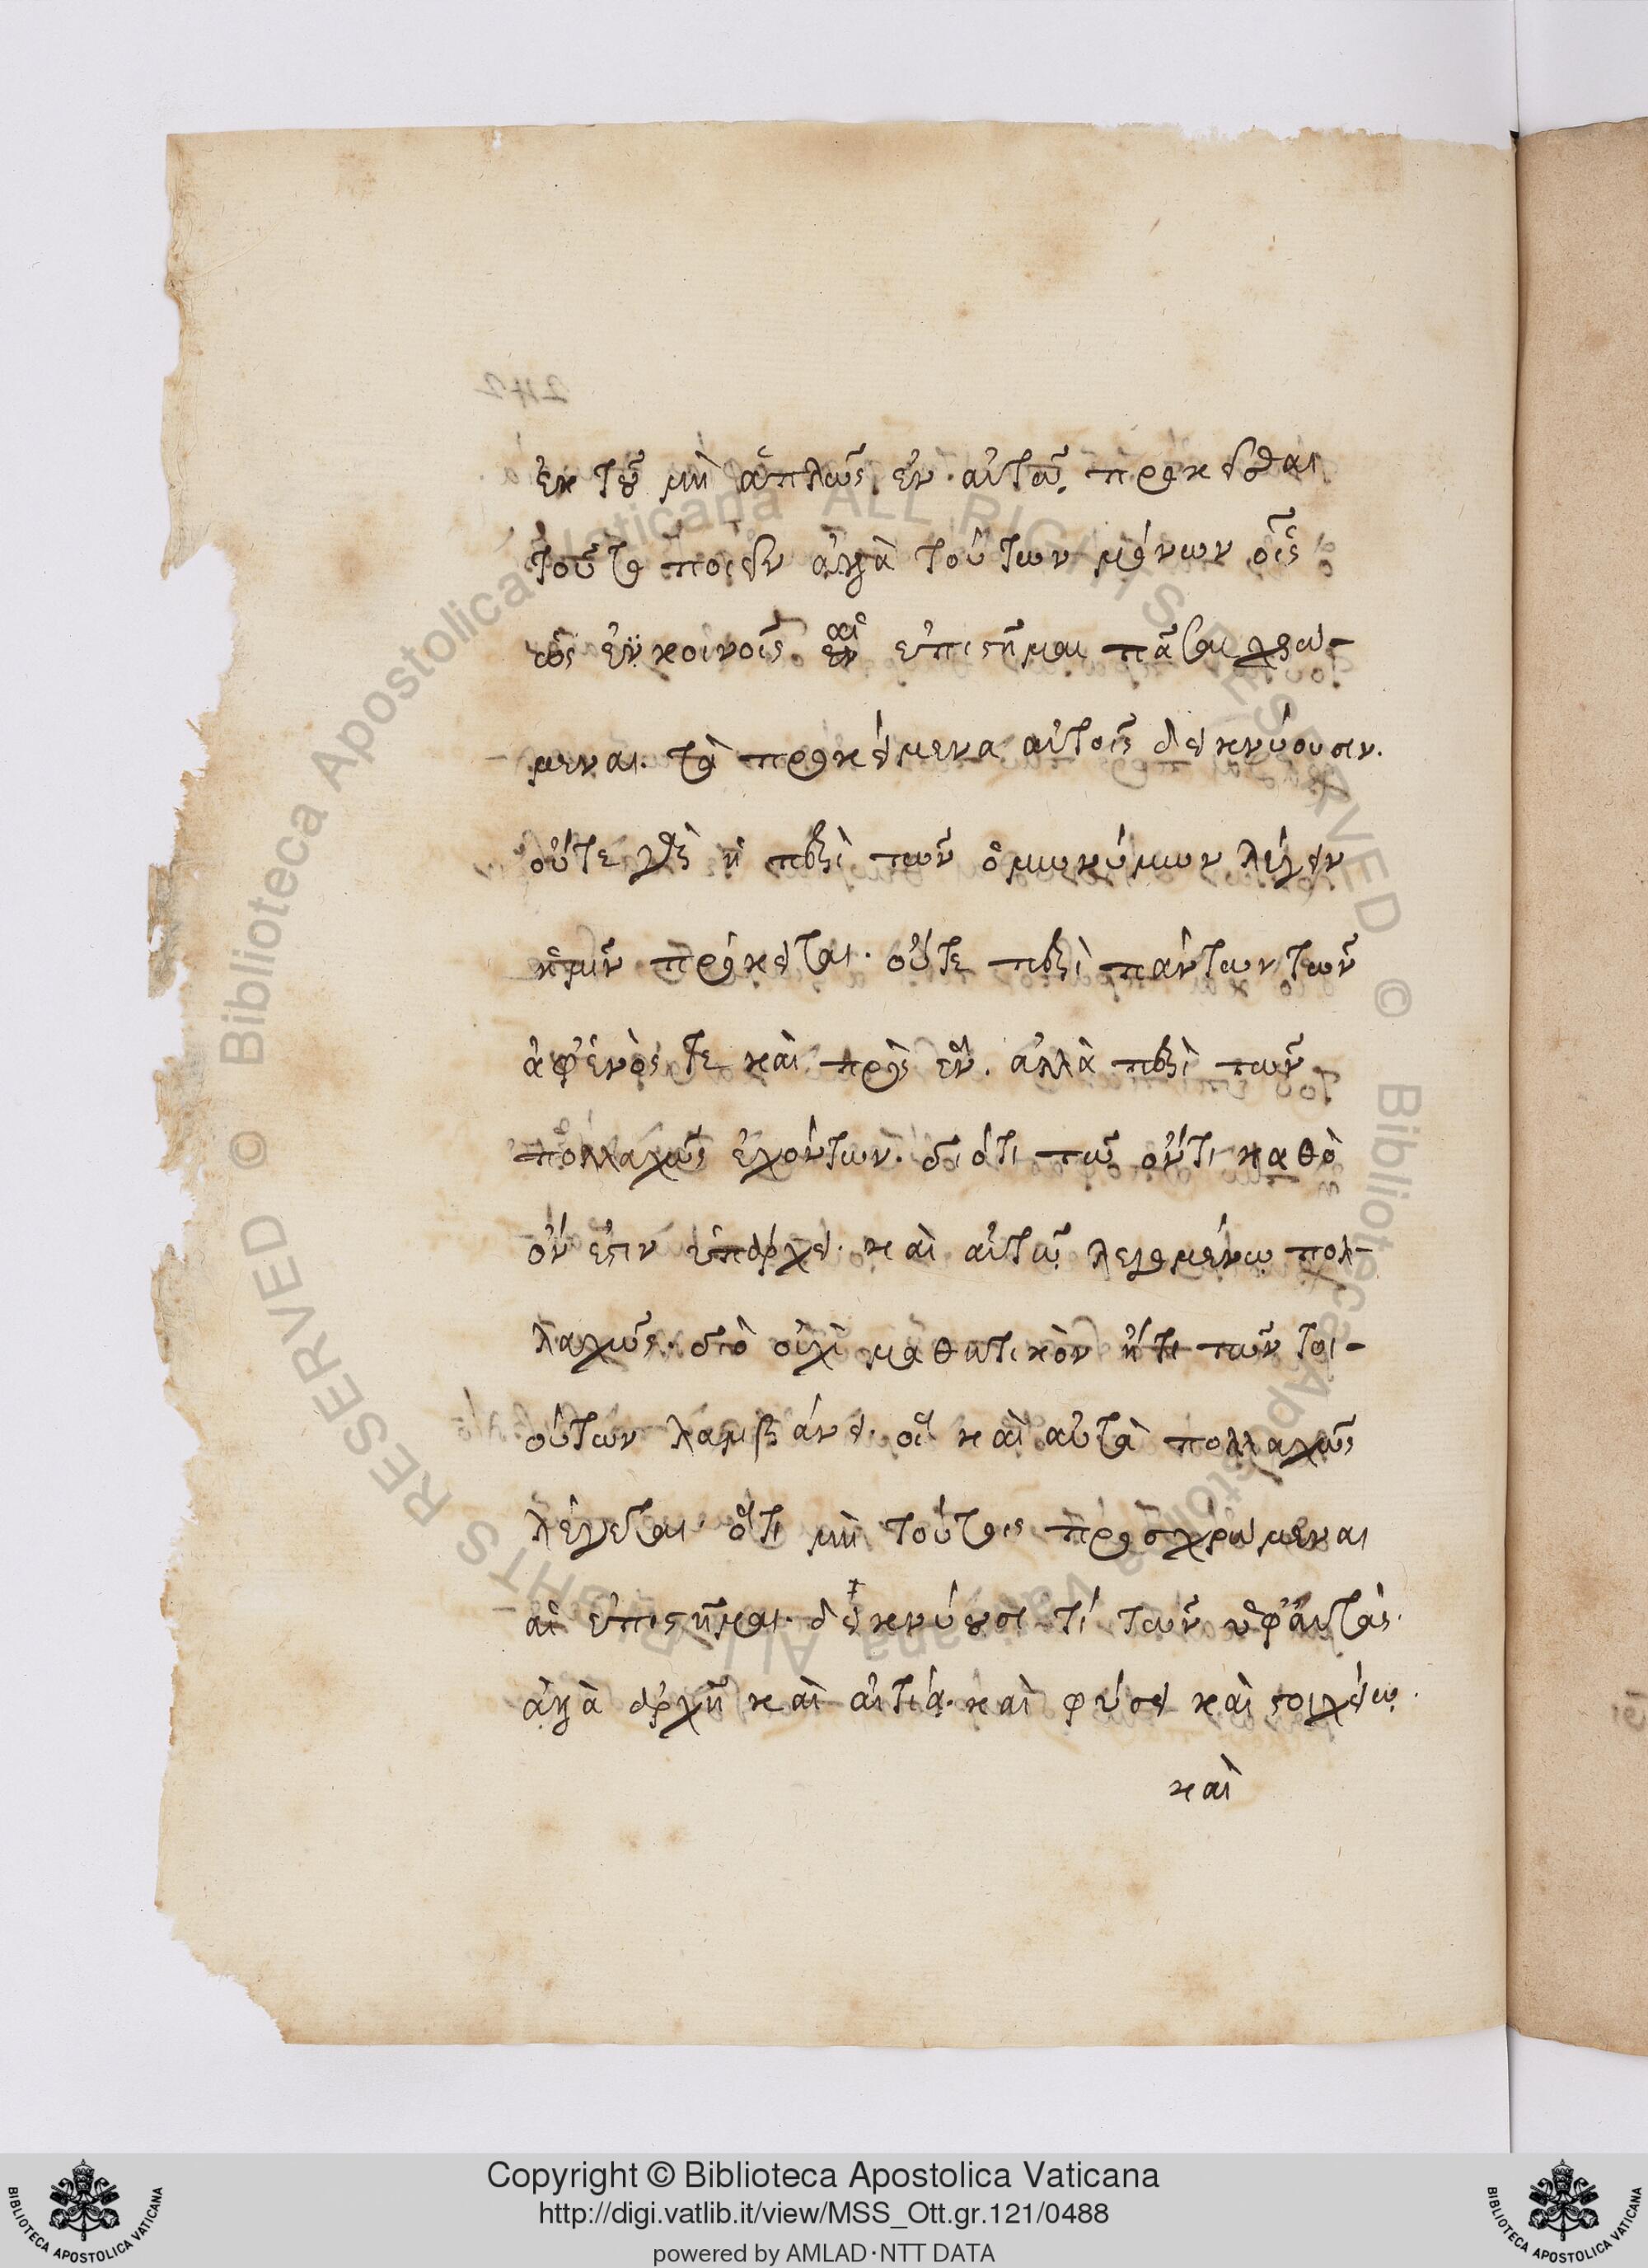 ἐκ τοῦ μὴ ἁπλῶς ἐν αὐτῷ προκεῖσθαι
τοῦτο ποιεῖν ἀλλὰ τούτων μόνων οἷς
ὡς ἐν κοινοῖς αἱ ἐπιστῆμαι πᾶσαι χρώ-
μεναι. τὰ προκείμενα αὐτοῖς δεικνύουσιν.
οὔτε γὰρ ἢ περὶ τῶν ὁμωνύμων λέγειν
ἡμῖν πρόκειται. οὔτε περὶ πάντων τῶν
ἀφ' ἑνός τε καὶ πρὸς ἕν. ἀλλὰ περὶ τῶν
πολλαχῶς ἐχόντων. διότι τῷ ὄντι καθὸ
ὄν ἐστιν ὑπάρχει. καὶ αὐτῷ λεγομένῳ πολ-
λαχῶς. διὸ οὐχὶ μαθητικὸν ἤ τι τῶν τοι-
ούτων λαμβάνει. οἳ καὶ αὐτὰ πολλαχῶς
λέγεται. ὅτι μὴ τούτοις προσχρώμεναι
αἱ ἐπιστῆμαι. δεικνύουσι τί τῶν ὑφ' αὑτάς.
ἀλλὰ ἀρχῇ καὶ αἰτίᾳ. καὶ φύσει καὶ στοιχείῳ.
καὶ
Copyright © Biblioteca Apostolica Vaticana
http://digi.vatlib.it/view/MSS_Ott.gr.121/0488
powered by AMLAD·NTT DATA